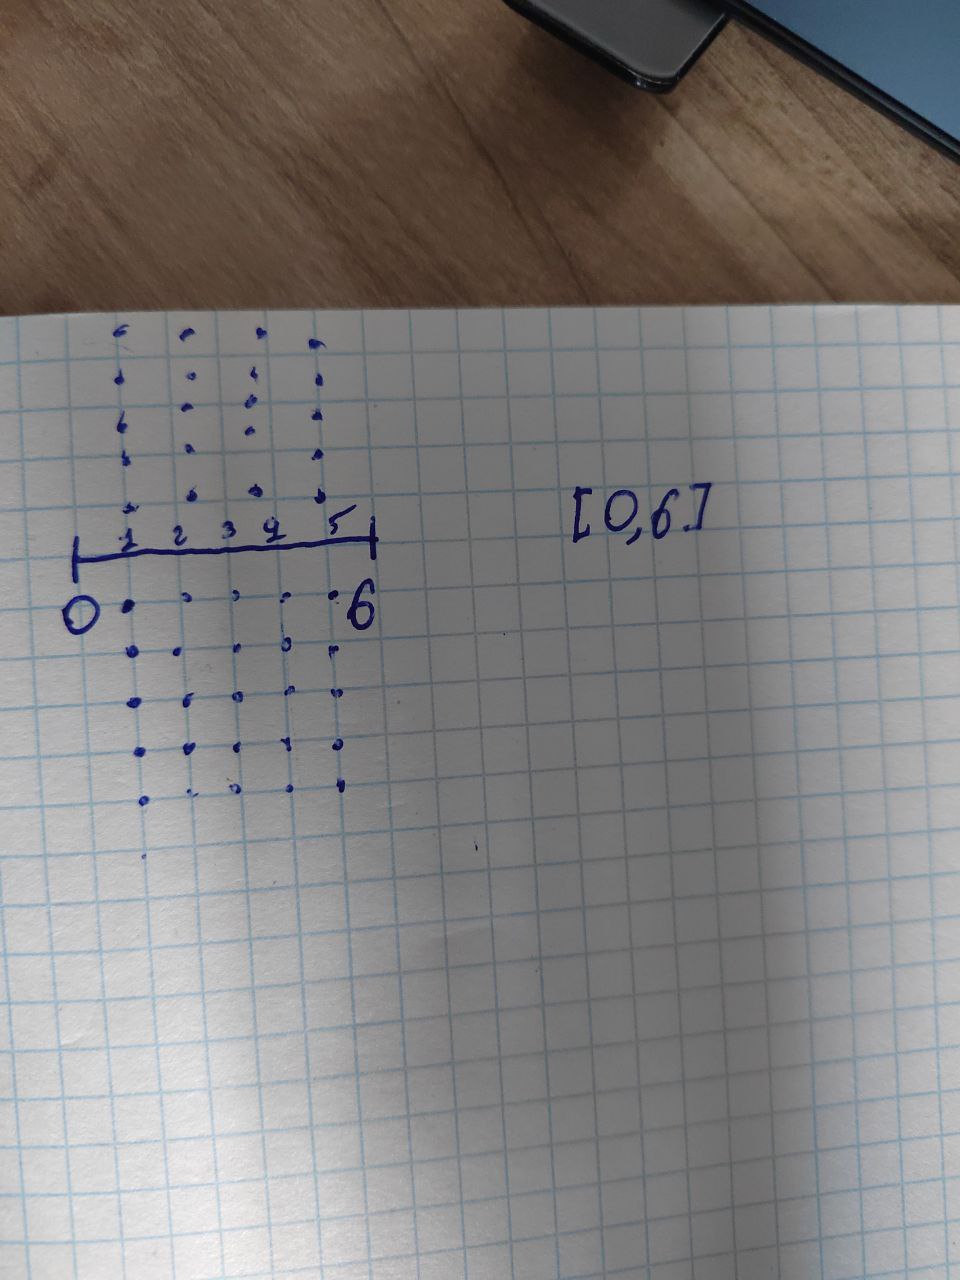 1 2 3 4 5
[0,6]
0 6